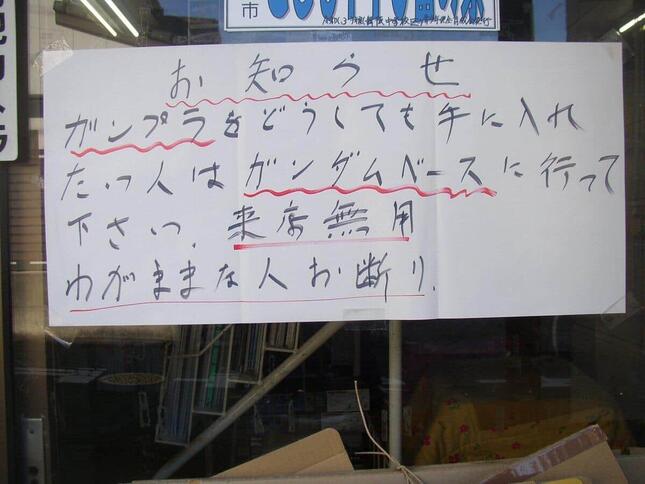 市
お知らせ
ガンプラをどうしても手に入れ
たい人はガンダムベースに行って
下さい。来店無用
わがままな人お断り。